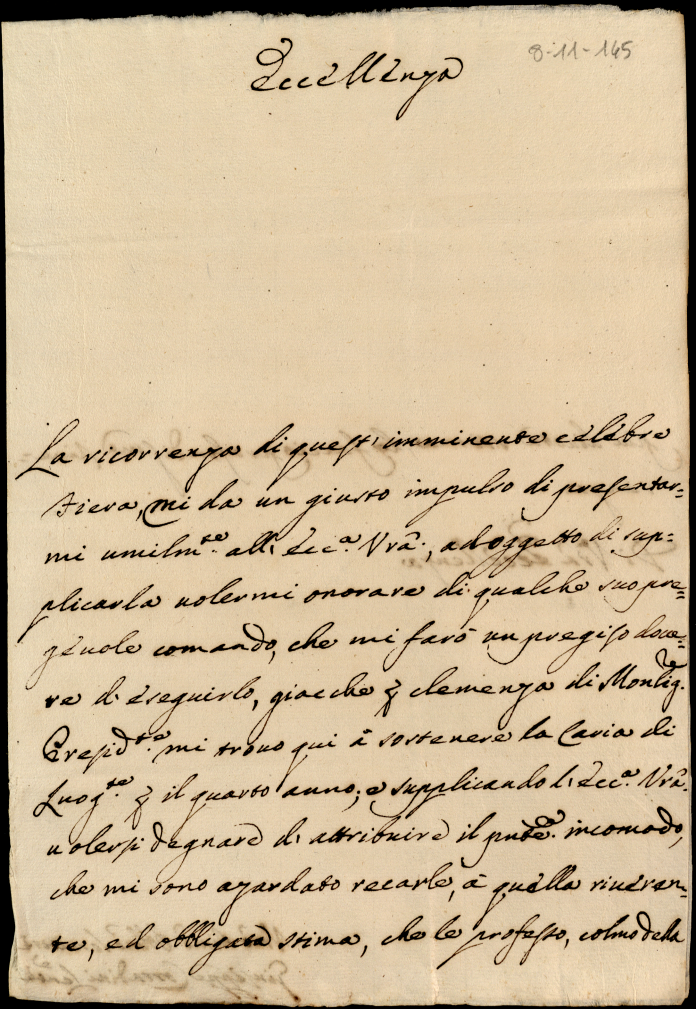 8-11-145
Eccellenza
La ricorrenza di quest' imminente celebre
Fiera, mi da un giusto impulso di presentar=
mi umilm.te all' Ecc.a Vrã., ad oggetto di sup=
plicarla volermi onorare di qualche suo pre=
gevole comando, che mi farò un pregiso dove=
re d' eseguirlo, giacche ꝑ clemenza di Monsig.re
Presid.te mi trovo qui à sostenere la Caria di
Luog.te ꝑ il quarto anno; e supplicando l' Ecc.a Vrã.
volersi degnare d' attribuire il pnte. incomodo,
che mi sono azardato recarle, à quella riveran=
te, ed obbligata stima, che le professo, colmo della